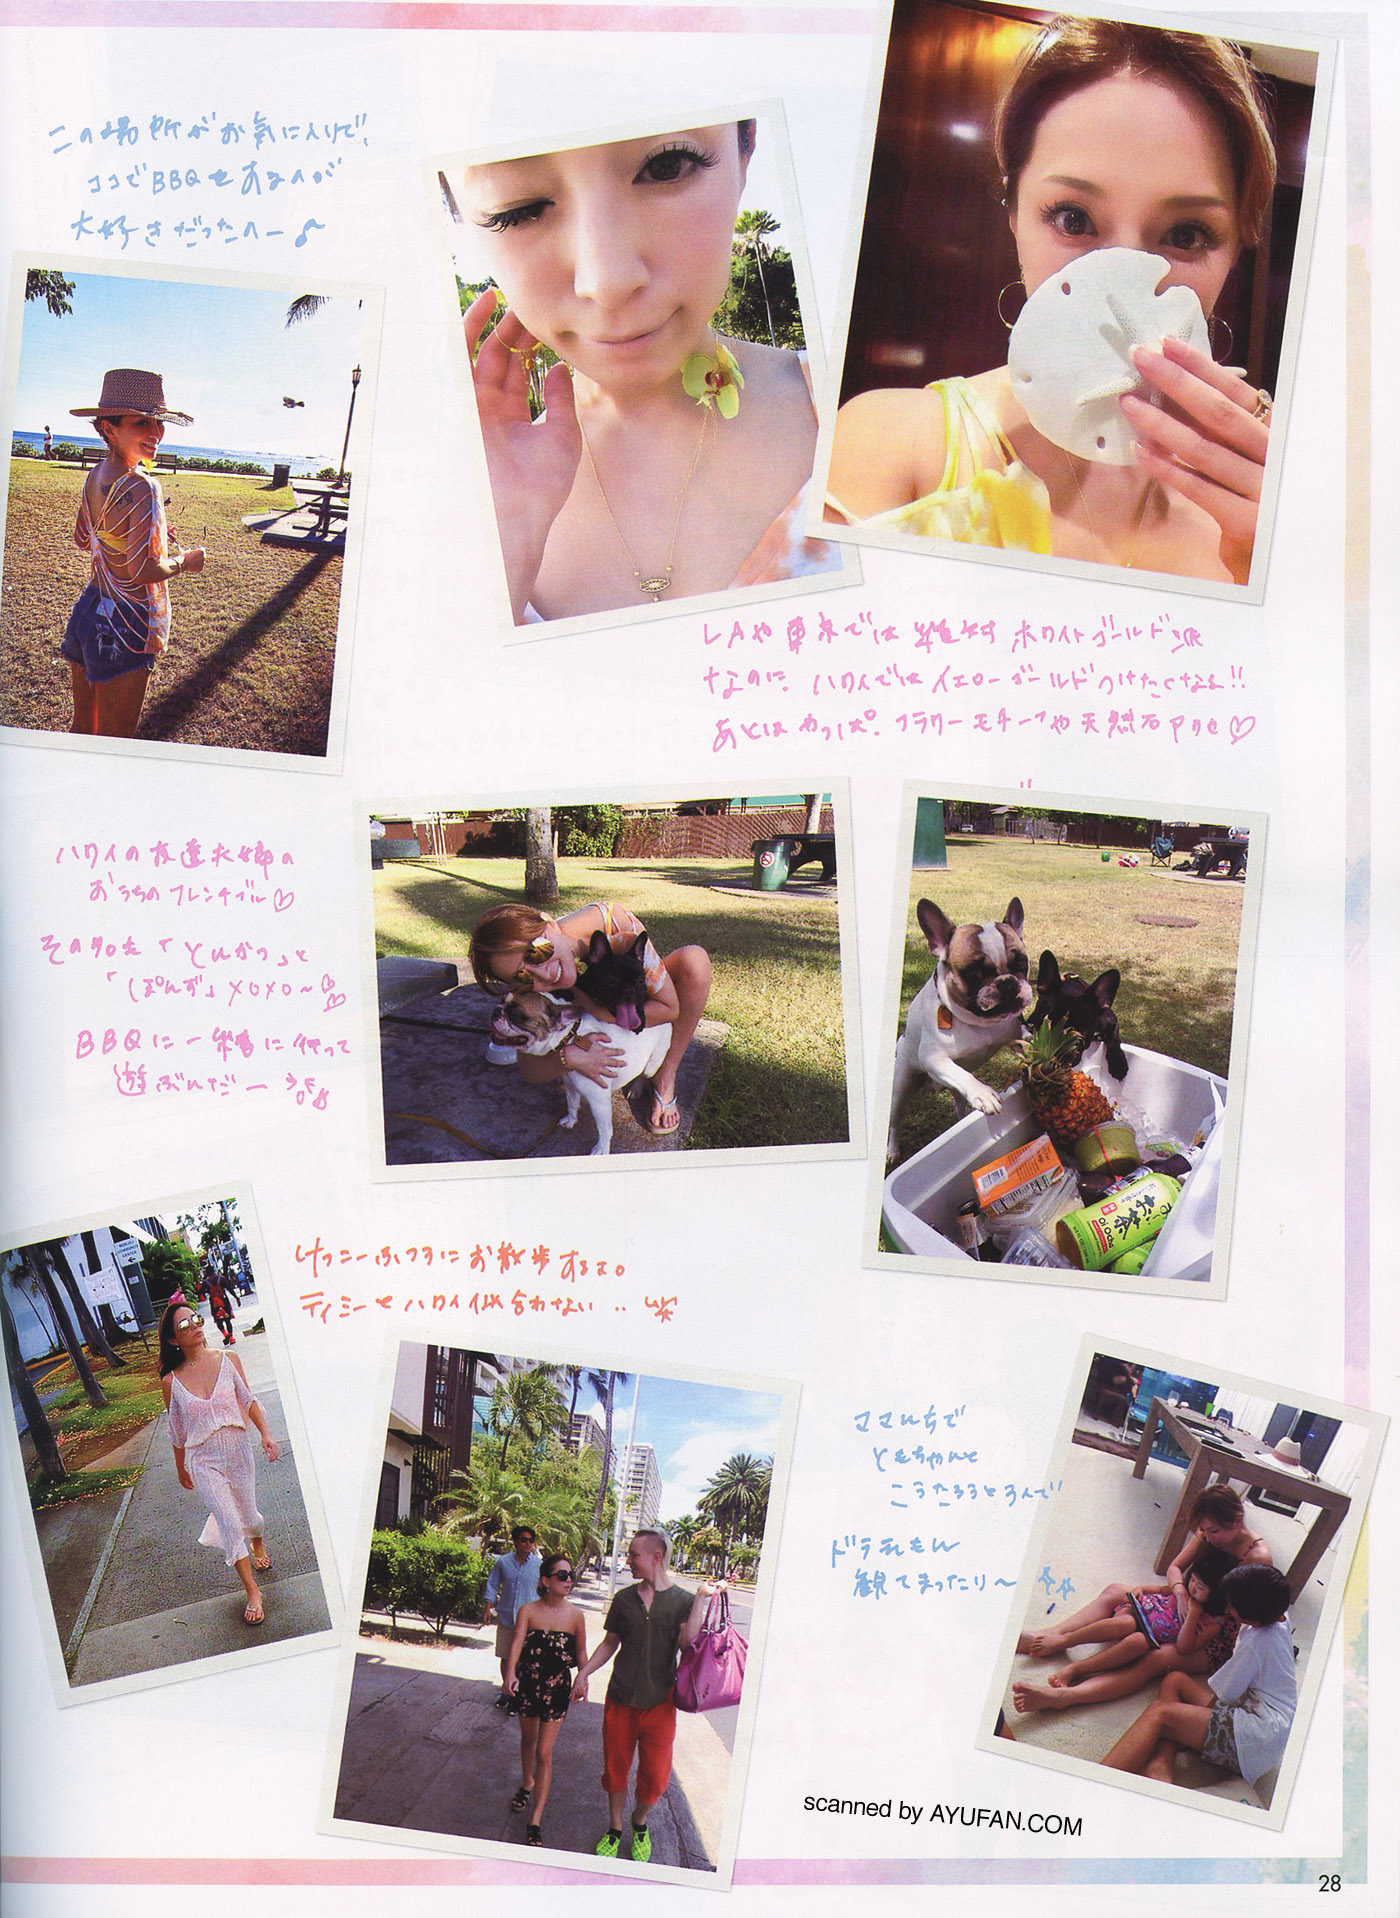 この場所がお気に入りで、
ココでBBQをするのが
大好きだったへー♪
LAや東京では絶対ホワイトゴールド派
なのに、ハワイではイエローゴールドつけたくなる!!
あとはやっぱ。フラワーモチーフや天然石アクセ♡
ハワイの友達夫婦の
おうちのフレンチブル♡
その名も「とんかつ」と
「ぽんず」XOXO~
BBQに一緒に行って
遊ぶんだー
けっこーふつうにお散歩するよ。
ティミーとハワイ似合わない‥笑
ママんちで
ともちゃんと
こうたろうと3人で
ドラえもん
観てまったり~
お～いお茶
scanned by AYUFAN.COM
28